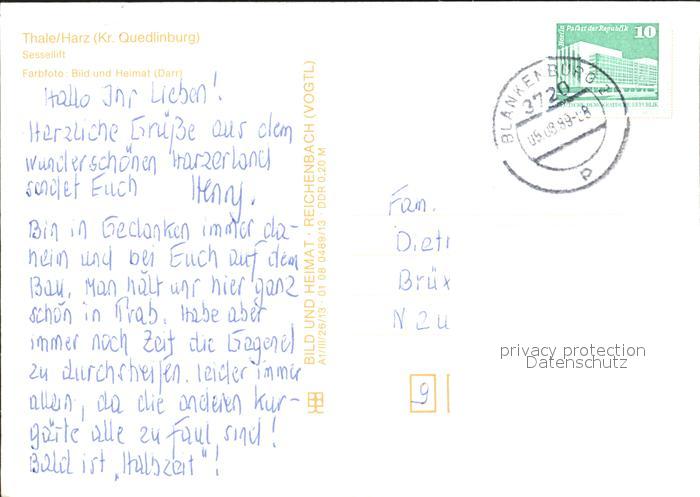 Thale/Harz (Kr. Quedlinburg)
Sessellift
Farbfoto: Bild und Heimat (Darr)
Hallo Ihr Lieben!
Herzliche Grüße aus dem
wunderschönen Harzerland
sendet Euch Henny.
Bin in Gedanken immer da-
heim und bei Euch auf dem
Bau. Man hält uns hier ganz
schön in Trab. Habe aber
immer noch Zeit die Gegend
zu durchstreifen. Leider immer
allein, da die anderen Kur-
gäste alle zu faul sind!
Bald ist „Halbzeit"!
BILD UND HEIMAT · REICHENBACH (VOGTL)
A1/III/26/13 · 01 08 0489/13 DDR 0,20 M
Berlin Palast der Republik
10
BLANKENBURG
3720
05.08.89-8
p
Fam.
Dietr
Brüx
N 2u
9
privacy protection
Datenschutz